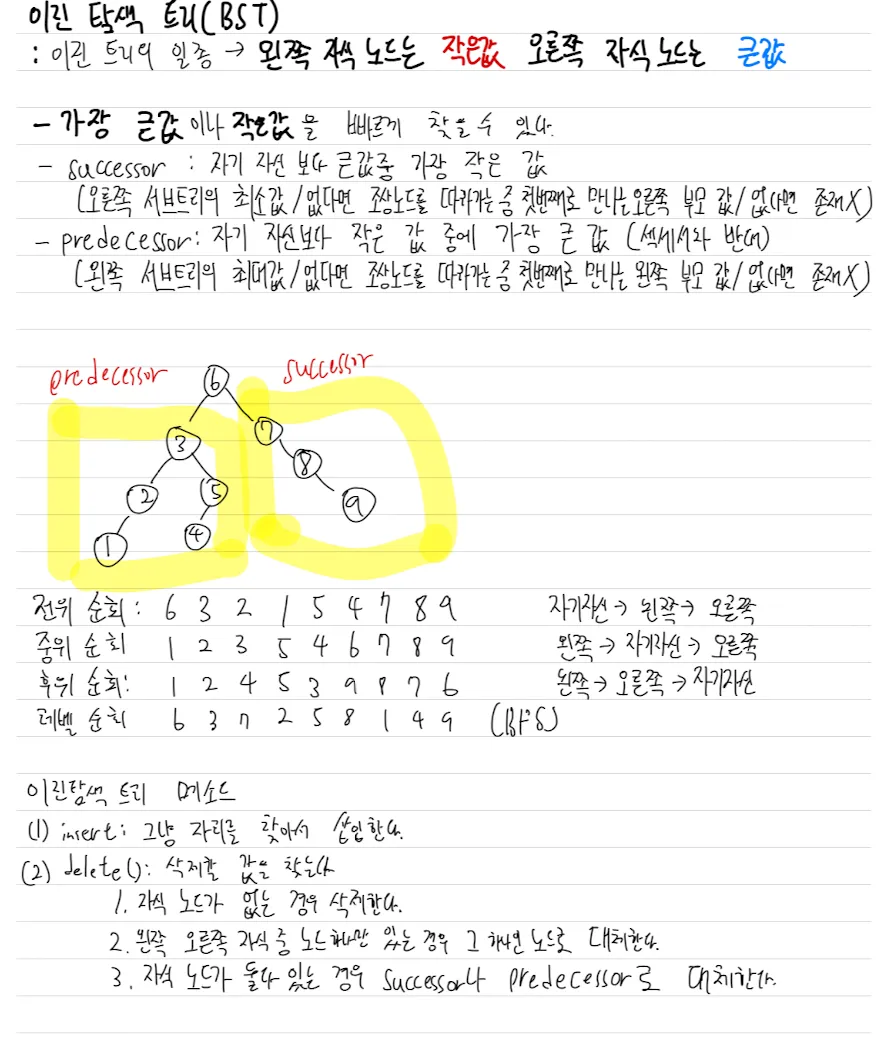 이진 탐색 트리(BST)
: 이진 트리의 일종 → 왼쪽 자식 노드는 작은값 오른쪽 자식 노드는 큰값
- 가장 큰값이나 작은값을 빠르게 찾을 수 있다.
- successor : 자기 자신 보다 큰값중 가장 작은 값
(오른쪽 서브트리의 최소값/없다면 조상노드를 따라가는 중 첫번째로 만나는 오른쪽 부모 값/없다면 존재X)
- predecessor: 자기 자신보다 작은 값 중에 가장 큰 값 (석세서와 반대)
(왼쪽 서브트리의 최대값/없다면 조상노드를 따라가는 중 첫번째로 만나는 왼쪽 부모 값/없다면 존재X)
predecessor successor
6
3 7
8
2 5 9
1 4
전위 순회: 6 3 2 1 5 4 7 8 9 자기자신→ 왼쪽→ 오른쪽
중위 순회 1 2 3 5 4 6 7 8 9 왼쪽→ 자기자신→ 오른쪽
후위 순회: 1 2 4 5 3 9 8 7 6 왼쪽→ 오른쪽→ 자기자신
레벨 순회 6 3 7 2 5 8 1 4 9 (BFS)
이진탐색 트리 메소드
(1) insert: 그냥 자리를 찾아서 삽입한다.
(2) delete(): 삭제할 값을 찾는다
1. 자식 노드가 없는 경우 삭제한다.
2. 왼쪽 오른쪽 자식 중 노드 하나만 있는 경우 그 하나인 노드로 대체한다.
3. 자식 노드가 둘다 있는 경우 successor나 predecessor로 대체한다.